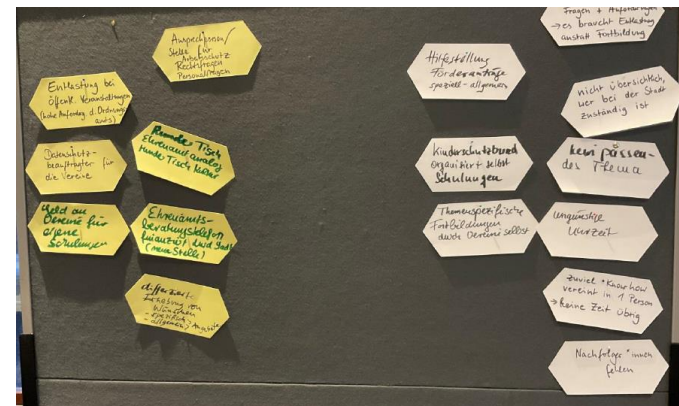 Ansprechperson/
Stelle für
Arbeitsschutz
Rechtsfragen
Personalfragen
Entlastung bei
öffentl. Veranstaltungen
(hohe Anforderg. d. Ordnungs-
amts)
Datenschutz-
beauftragter für
die Vereine
Runder Tisch
Ehrenamt analog
runder Tisch
Geld an
Vereine für
eigene
Schulungen
Ehrenamts-
beratungstelefon
finanziert durch Stadt
(neue Stelle)
differenzierte
Erhebung von
Wünschen
- spezifisch
- allgemein
Hilfestellung
Förderanträge
speziell - allgemein
Kinderschutzbund
organisiert selbst
Schulungen
Themenspezifische
Fortbildungen
durch Vereine selbst
Fragen + Anforderungen
→ es braucht Entlastung
anstatt Fortbildung
nicht übersichtlich,
wer bei der Stadt
zuständig ist
kein passen-
des Thema
ungünstige
Uhrzeit
zuviel "Knowhow
vereint in 1 Person
→ keine Zeit übrig
Nachfolger*innen
fehlen